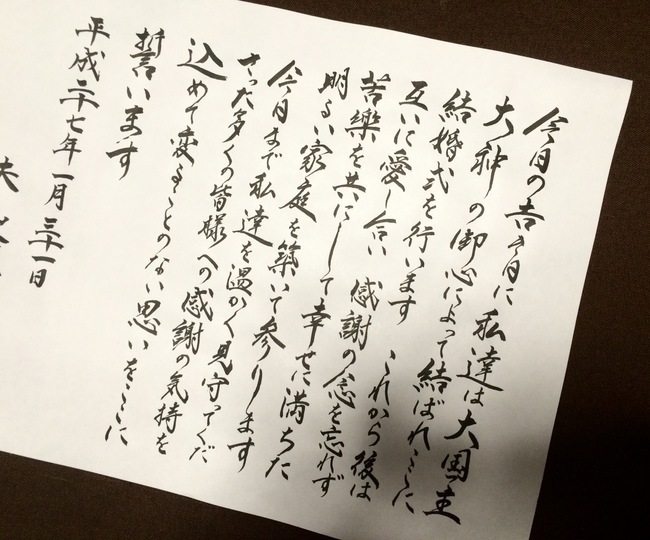 今日の吉き日に 私達は大国主
大神の御心によって結ばれここに
結婚式を行います これから後は
互いに愛し合い 感謝の念を忘れず
苦樂を共にして幸せに満ちた
明るい家庭を築いて参ります
今日まで私達を温かく見守ってくだ
さった多くの皆様への感謝の気持を
込めて変ることのない思いをここに
誓います
平成二十七年一月三十一日
夫